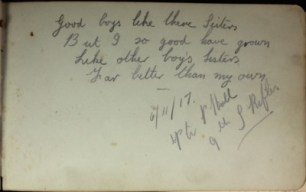 Good boys like there Sisters
But I so good have grown
Like other boys Sisters
Far better than my own
6/11/17.
Pte P Hall
9th S Rifles